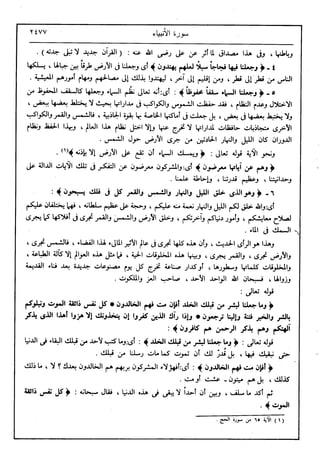 سورة الأنبياء
٢٤٧٧
وباطنها ، وفى هذا مصداق لما أثر عن على رضى الله عنه : ( القرآن جديد لا تبلى جدته ) .
٤ - ﴿ وجعلنا فيها فجاجاً سبلاً لعلهم يهتدون ﴾ أى وجعلنا فى الأرض طرقاً بين جبالها ، يسلكها
الناس من قطر إلى قطر ، ومن إقليم إلى آخر ، ليهتدوا بذلك إلى مصالحهم ومهام أمورهم المعيشية .
٥ - ﴿ وجعلنا السماء سقفاً محفوظاً ﴾ : أى : أنه تعالى نظم السماء وجعلها كالسقف المحفوظ من
الاختلال وعدم النظام ، فقد حفظت الشمس والكواكب فى مداراتها بحيث لا يختلط بعضها ببعض ،
ولا يختبط بعضها فى بعض ، بل جعلت فى أماكنها الخاصة بها بقوة الجاذبية ، فالشمس والقمر والكواكب
الأخرى متجاذبات حافظات لمداراتها لا تخرج عنها وإلا اختل نظام هذا العالم ، وبهذا الحفظ ونظام
الدوران كان الليل والنهار الحادثين من جرى الأرض حول الشمس .
ونحو الآية قوله تعالى : ﴿ ويمسك السماء أن تقع على الأرض إلا بإذنه ﴾(١) .
﴿ وهم عن آياتها معرضون ﴾ : أى : والمشركون معرضون عن التفكير فى تلك الآيات الدالة على
وحدانيتنا ، وعظيم قدرتنا ، وإحاطة علمنا .
٦ - ﴿ وهو الذى خلق الليل والنهار والشمس والقمر كل فى فلك يسبحون ﴾ :
أى : والله خلق لكم الليل والنهار نعمة منه عليكم ، وحجة على عظيم سلطانه ، فهما يختلفان عليكم
لصلاح معايشكم ، وأمور دنياكم وآخرتكم ، وخلق الأرض والشمس والقمر تجرى فى أفلاكها كما يجرى
السمك فى الماء .
وهذا هو الرأى الحديث ، وأن هذه كلها تجرى فى عالم الأثير المالئ لهذا الفضاء ، فالشمس تجرى ،
والأرض تجرى ، والقمر يجرى ، وبينها هذه المخلوقات الحية ، فما مثل هذه العوالم إلا كآلة الطباعة ،
والمخلوقات كلماتها وسطورها ، أو كدار صناعة تخرج كل يوم مصنوعات جديدة بعد فناء القديمة
وزوالها ، فسبحان الله الواحد الأحد ، صاحب العز والملكوت .
قوله تعالى :
﴿ وما جعلنا لبشر من قبلك الخلد أفإن مت فهم الخالدون * كل نفس ذائقة الموت ونبلوكم
بالشر والخير فتنة وإلينا ترجعون * وإذا رآك الذين كفروا إن يتخذونك إلا هزوا أهذا الذى يذكر
آلهتكم وهم بذكر الرحمن هم كافرون ﴾ :
قوله تعالى : ﴿ وما جعلنا لبشر من قبلك الخلد ﴾ : أى : وما كتب لأحد من قبلك البقاء فى الدنيا
حتى نبقيك فيها ، بل قدر لك أن تموت كما مات رسلنا من قبلك .
﴿ أفإن مت فهم الخالدون ﴾ : أى : أفهؤلاء المشركون بربهم هم الخالدون بعدك ؟ لا ، ما ذلك
كذلك ، بل هم ميتون - عشت أو مت .
ثم أكد ما سلف ، وبين أن أحداً لا يبقى فى هذه الدنيا ، فقال سبحانه : ﴿ كل نفس ذائقة
الموت ﴾ .
(١) الآية ٦٥ من سورة الحج .